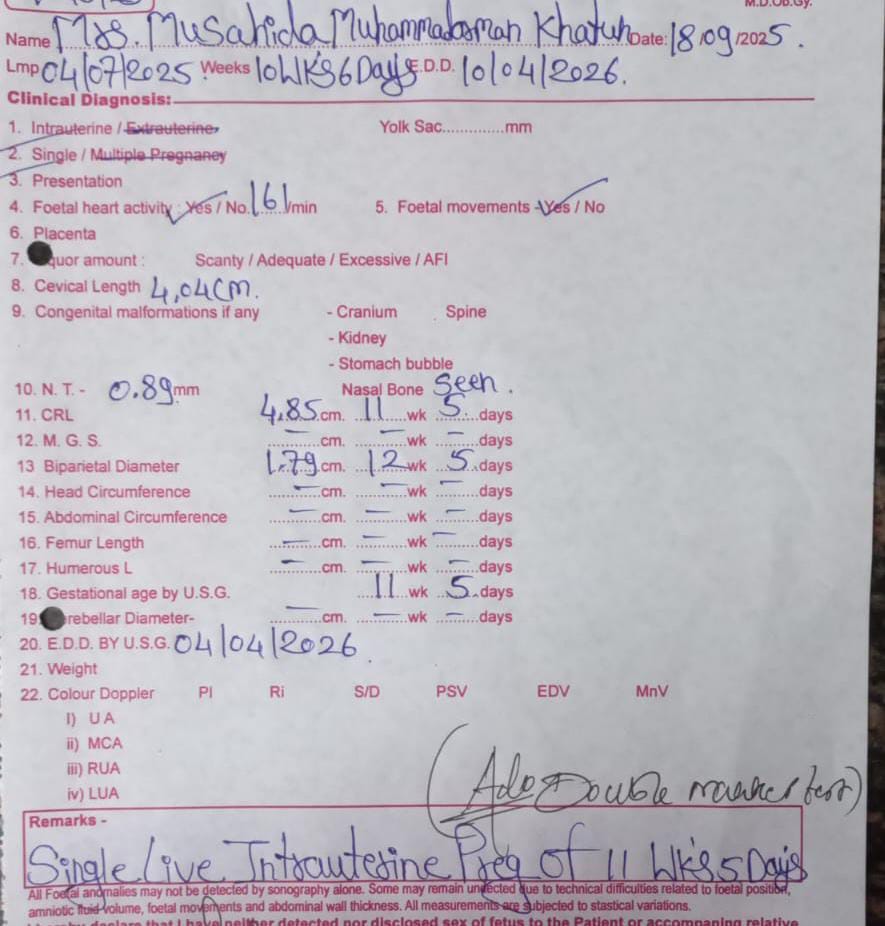 M.D.OB.Gy.
Name Mrs. Musahida Muhammadosman Khatun Date: 18/09/2025.
Lmp 04/07/2025 Weeks 10WK'S 6 Days E.D.D. 10/04/2026.
Clinical Diagnosis:
1. Intrauterine / Extrauterine Yolk Sac..............mm
2. Single / Multiple Pregnancy
3. Presentation
4. Foetal heart activity : Yes / No. 161/min 5. Foetal movements - Yes / No
6. Placenta
7. quor amount : Scanty / Adequate / Excessive / AFI
8. Cevical Length 4,04CM.
9. Congenital malformations if any - Cranium Spine
- Kidney
- Stomach bubble
10. N. T. - 0.89mm Nasal Bone Seen.
11. CRL 4.85 cm. 11 wk 5 days
12. M. G. S. — cm. — wk — days
13 Biparietal Diameter 1.79 cm. 12 wk 5 days
14. Head Circumference — cm. — wk — days
15. Abdominal Circumference — cm. — wk — days
16. Femur Length — cm. — wk — days
17. Humerous L — cm. — wk — days
18. Gestational age by U.S.G. 11 wk 5 days
19 rebellar Diameter- — cm. — wk — days
20. E.D.D. BY U.S.G. 04/04/2026.
21. Weight
22. Colour Doppler PI Ri S/D PSV EDV MnV
I) U A
ii) MCA
iii) RUA
iv) LUA
(Adv Double marker test)
Remarks -
Single Live Intrauterine Preg Of 11 Wk's 5 Days
All Foetal anomalies may not be detected by sonography alone. Some may remain undected due to technical difficulties related to foetal position,
amniotic fluid volume, foetal movements and abdominal wall thickness. All measurements are subjected to stastical variations.
declare that I have neither detected nor disclosed sex of fetus to the Patient or accompaning relative